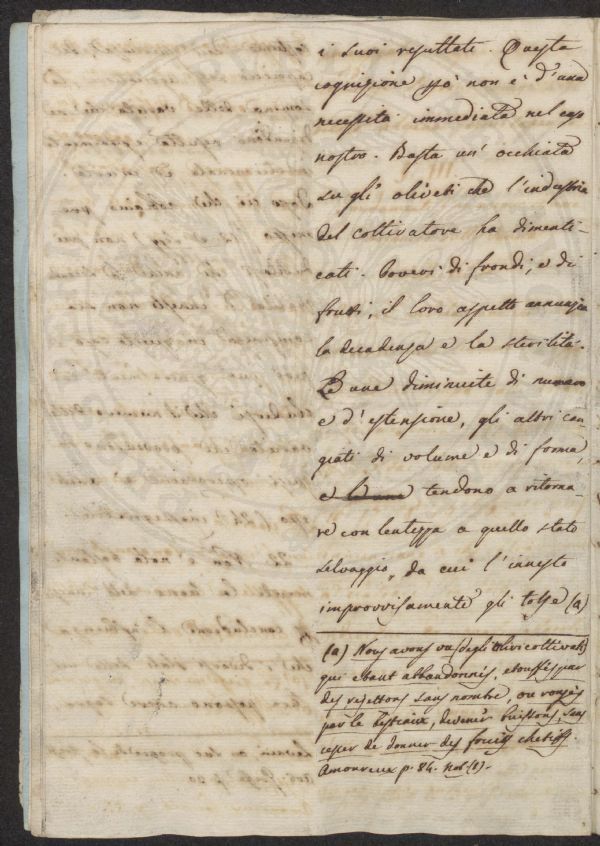 i suoi resultati. Questa
cognizione pò non è d'una
necessità immediata nel caso
nostro. Basta un' occhiata
su gli oliveti che l'industria
del coltivatore ha dimenti-
cati. Poveri di frondi, e di
frutti, il loro aspetto annunzia
la decadenza e la sterilità.
Le une diminuite di numero
e d'estensione, gli altri can-
giati di volume e di forma,
e le une tendono a ritorna-
re con lentezza a quello stato
selvaggio, da cui l'innesto
improvvisamente gli tolse (a)
(a) Nous avons vu des oliviers
qui etant abbandonnés, etouffés par
des rejettons sans nombre, ou rongés
par le bestiaux, devenir buissons, sans
cesser de donner des fruits chetifs.
Amoureux p. 84. not. (1).